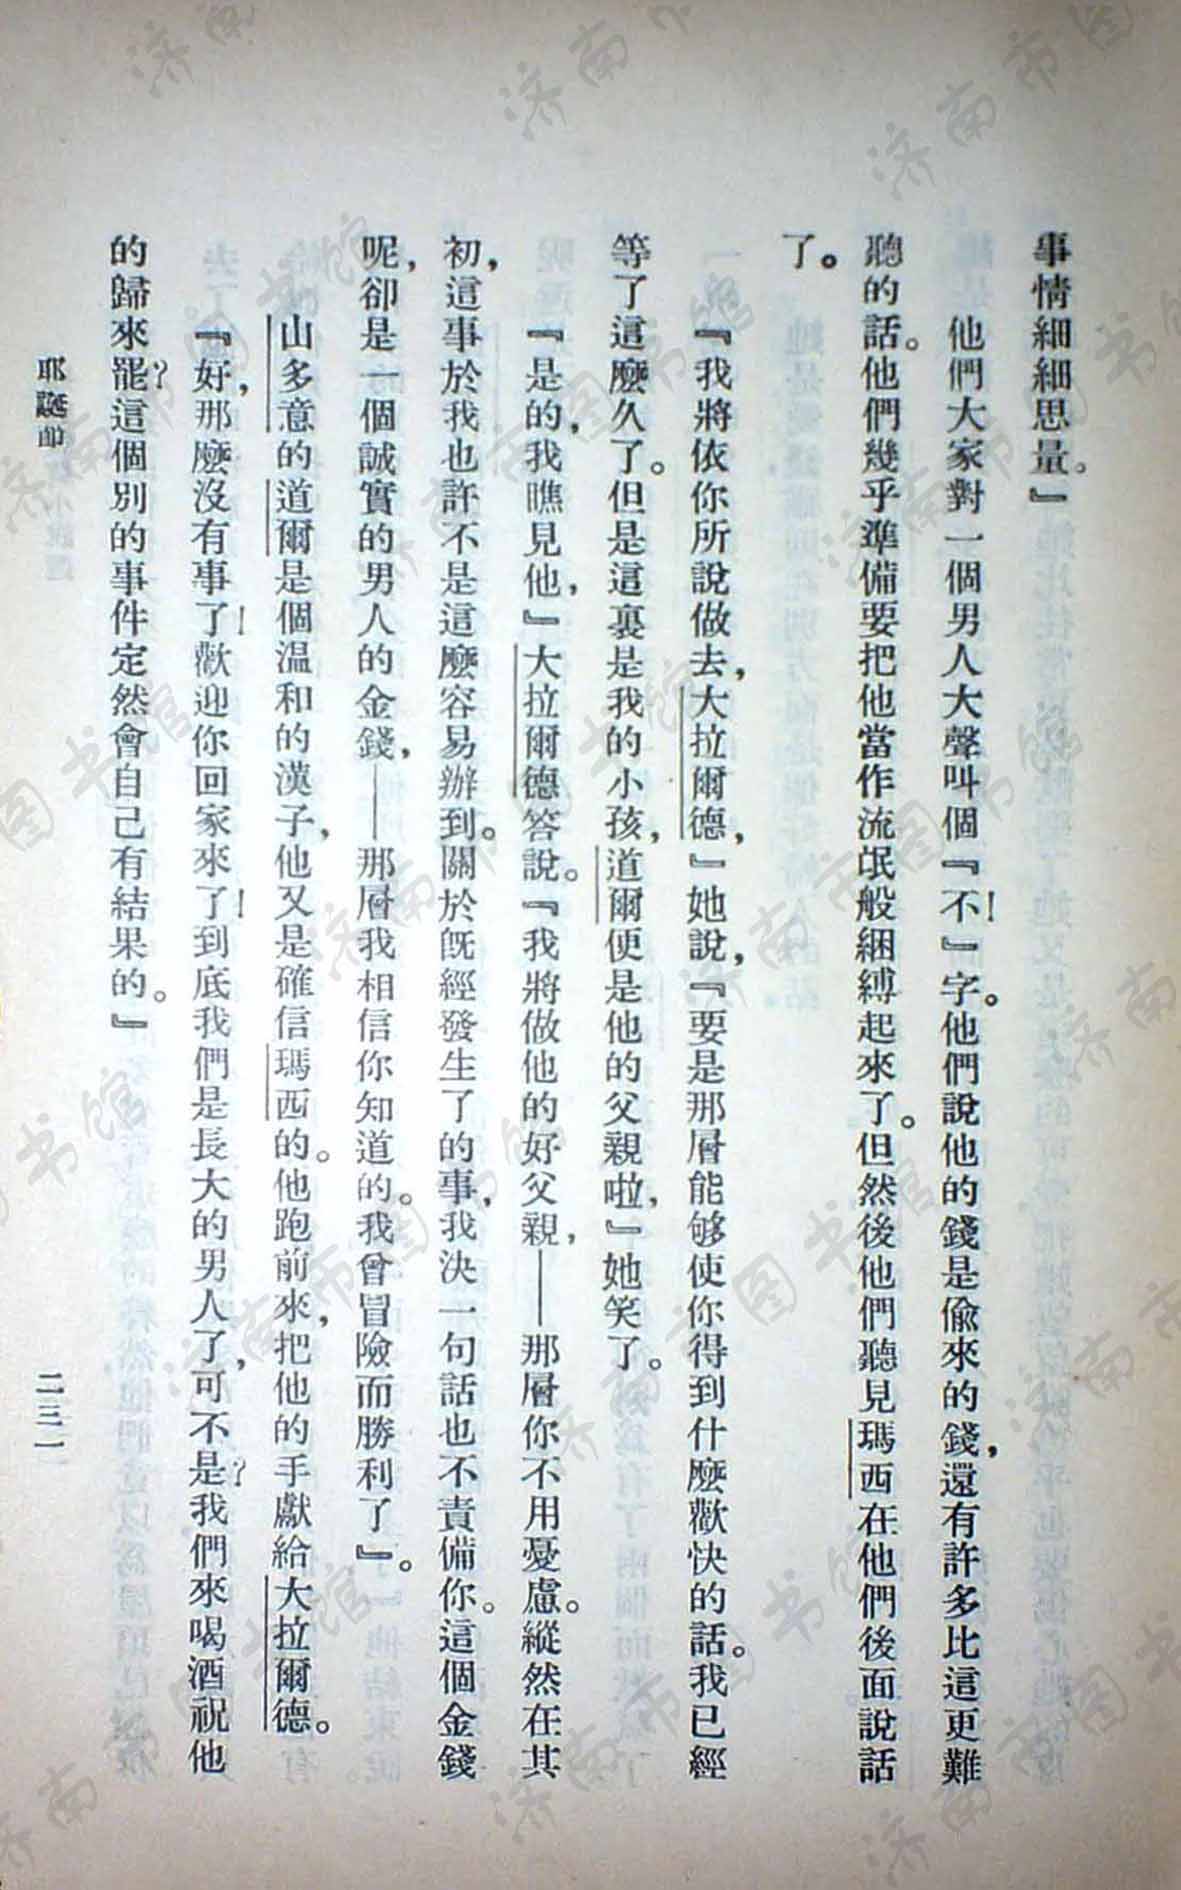 事情細細思量。』
他們大家對一個男人大聲叫個『不！』字。他們說他的錢是偷來的錢，還有許多比這更難
聽的話。他們幾乎準備要把他當作流氓般綑縛起來了。但然後他們聽見瑪西在他們後面說話
了。
『我將依你所說做去，大拉爾德，』她說，『要是那層能够使你得到什麼歡快的話。我已經
等了這麼久了。但是這裏是我的小孩，道爾便是他的父親啦，』她笑了。
『是的，我瞧見他，』大拉爾德答說。『我將做他的好父親，——那層你不用憂慮。縱然在其
初，這事於我也許不是這麼容易辦到。關於既經發生了的事，我決一句話也不責備你。這個金錢
呢，卻是一個誠實的男人的金錢，——那層我相信你知道的。我曾冒險而勝利了』。
山多意的道爾是個温和的漢子，他又是確信瑪西的。他跑前來，把他的手獻給大拉爾德。
『好，那麼沒有事了！歡迎你回家來了！到底我們是長大的男人了，可不是？我們來喝酒祝他
的歸來罷？這個別的事件定然會自己有結果的。』
耶誕節
二三一
济南市图书馆